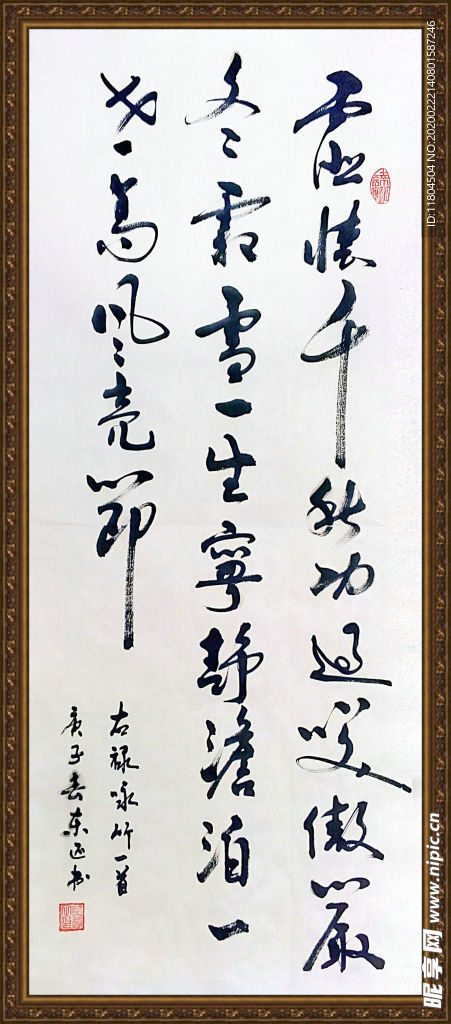 虚怀千秋功过笑傲严
冬霜雪一生宁静澹泊一
世高风亮节
右禄咏竹一首
庚子春东正书
ID:11804504 NO:20200222140801587246
昵享网 www.nipic.cn